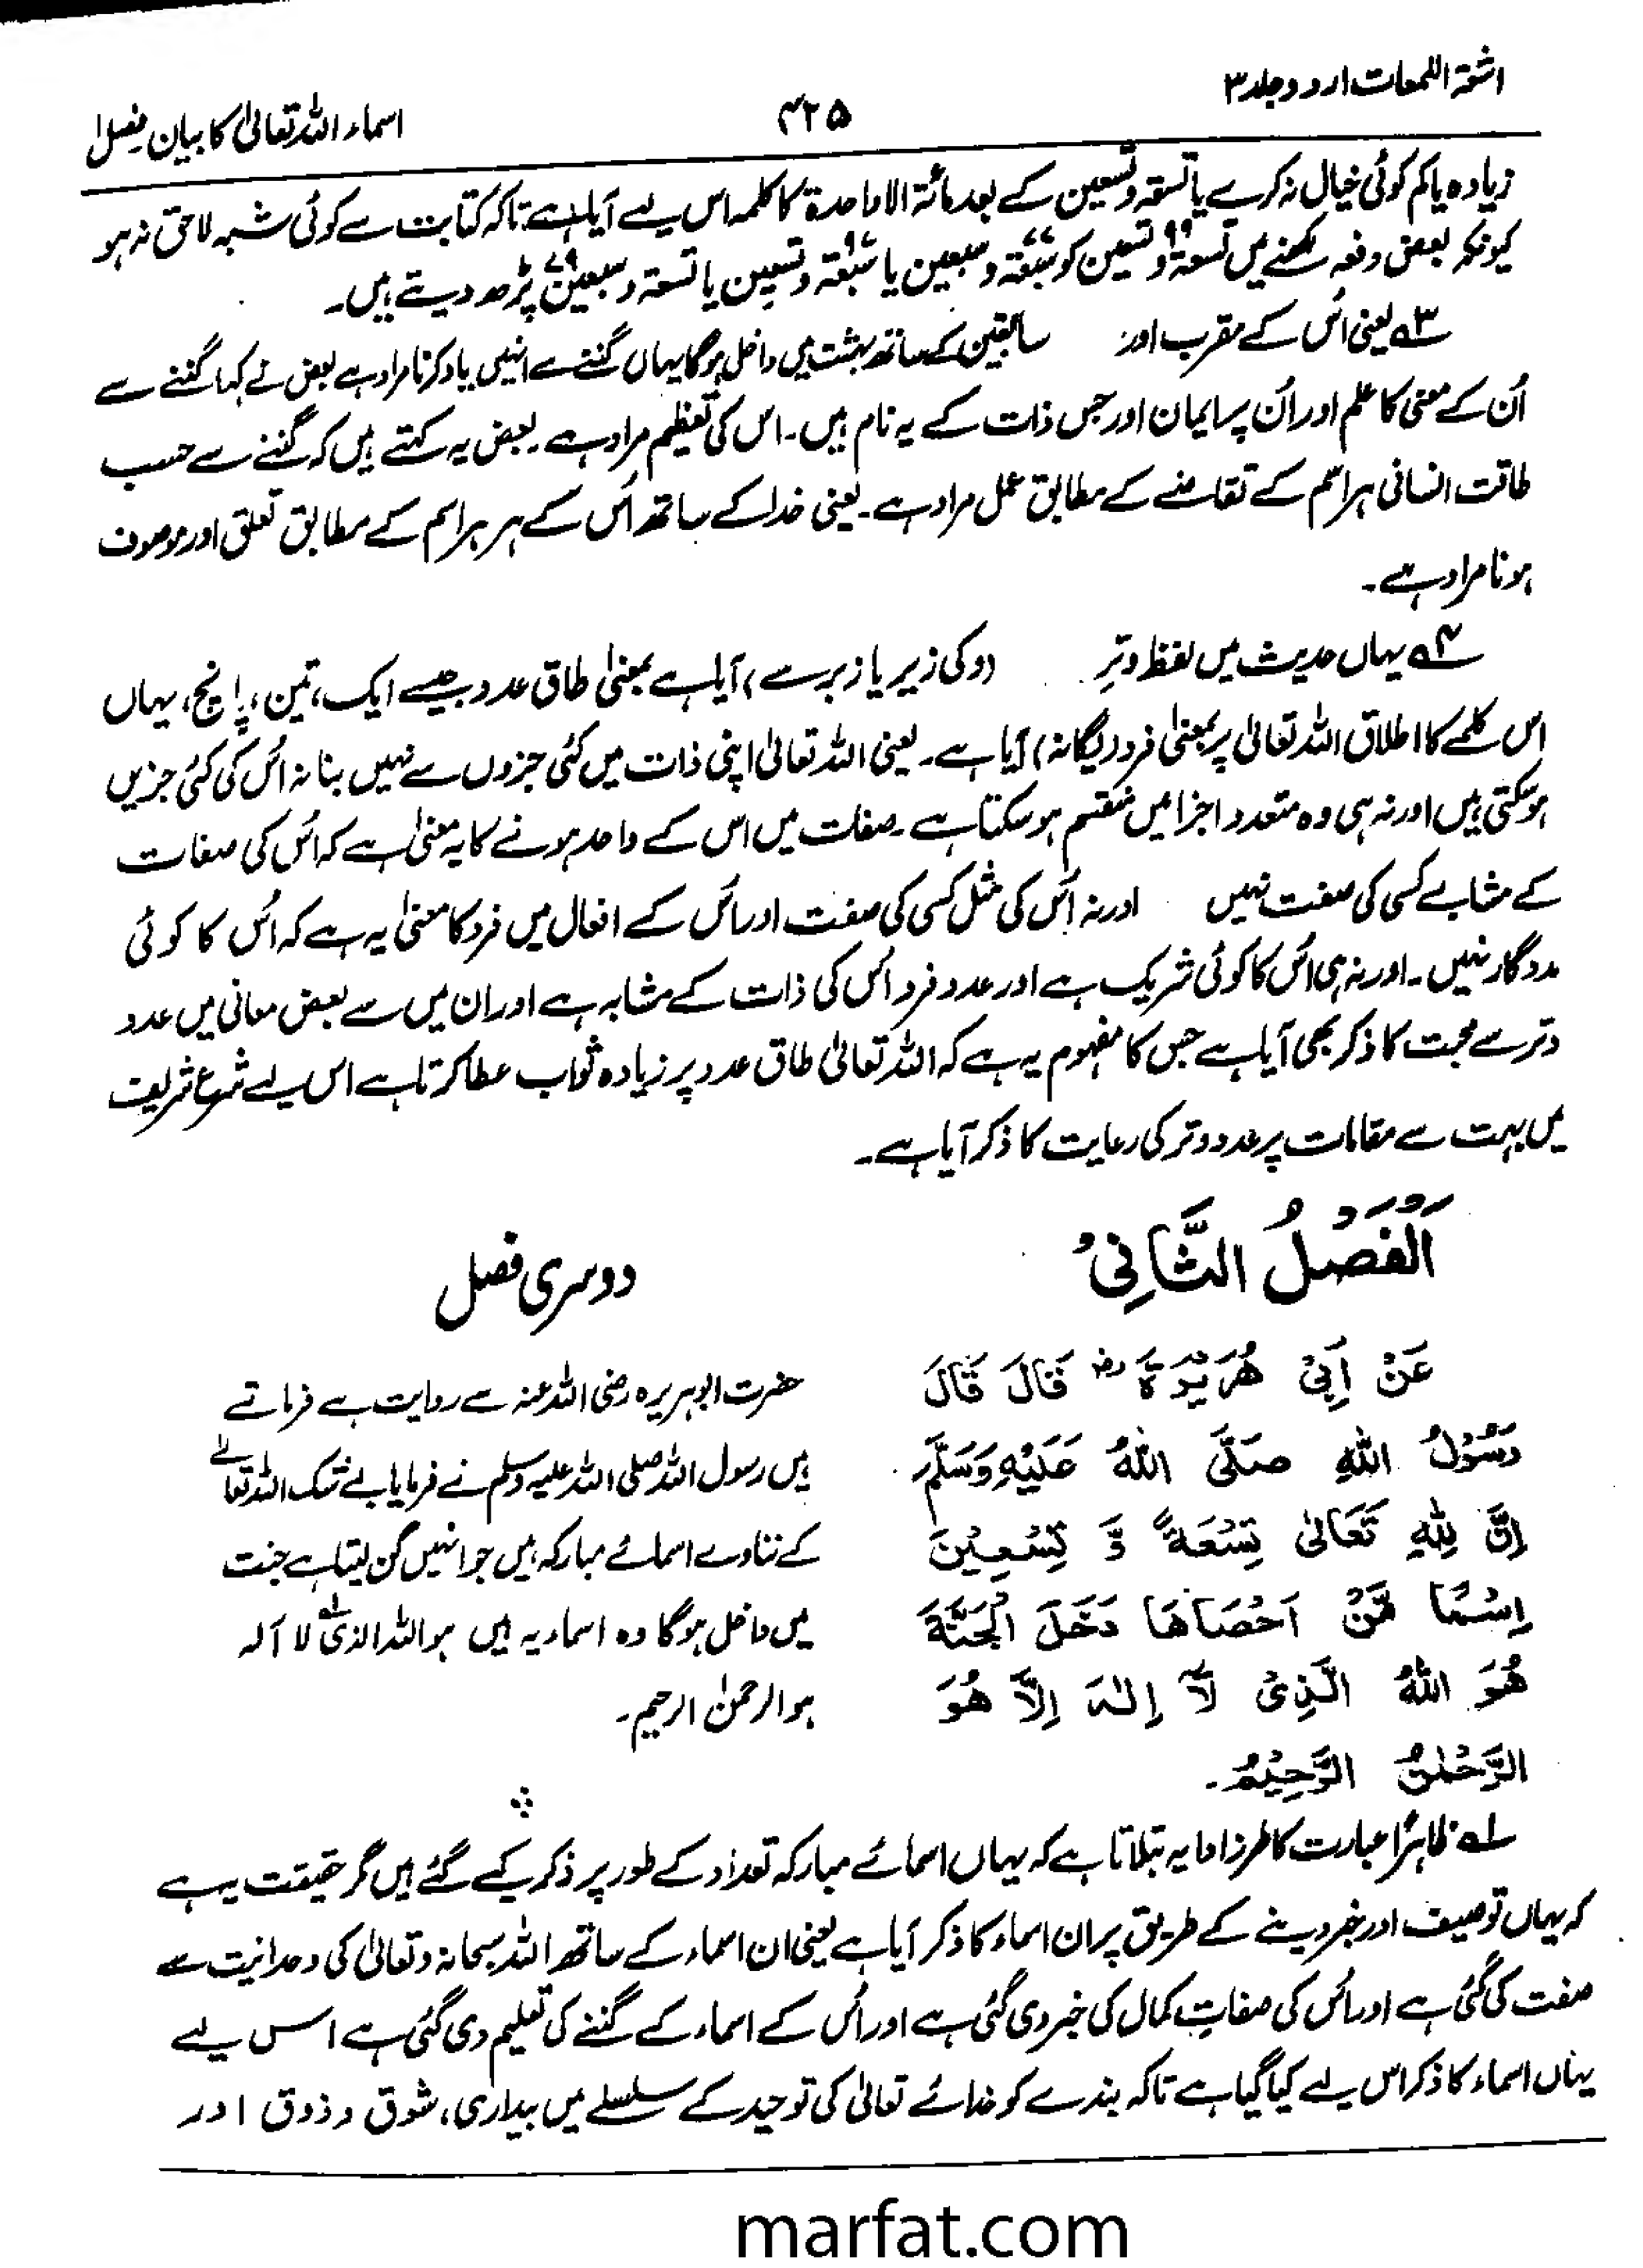 اشعۃ اللمعات اردو جلد ۳
۴۲۵
اسماء اللہ تعالیٰ کا بیان فصل ۱
زیادہ یا کم کوئی خیال نہ کرے یا تسعۃ وتسعین کے بعد مائۃ الا واحدۃ کا کلمہ اس لیے آیا ہے تاکہ کتابت سے کوئی شبہ لاحق نہ ہو
کیونکہ بعض دفعہ لکھنے میں تسعۃ وتسعین ۹۹ کو سبعۃ وسبعین ۷۷ یا سبعۃ وتسعین ۹۷ یا تسعۃ وسبعین ۷۹ پڑھ دیتے ہیں۔
۳؎ یعنی اُس کے مقرب اور سابقین کے ساتھ بہشت میں داخل ہوگا یہاں گننے سے انہیں یاد کرنا مراد ہے بعض نے کہا گننے سے
اُن کے معنی کا علم اور اُن پر ایمان اور جس ذات کے یہ نام ہیں۔ اس کی تعظیم مراد ہے۔ بعض یہ کہتے ہیں کہ گننے سے حسب
طاقت انسانی ہر اسم کے تقاضے کے مطابق عمل مراد ہے۔ یعنی خدا کے ساتھ اُس کے ہر ہر اسم کے مطابق تعلق اور موصوف
ہونا مراد ہے۔
۴؎ یہاں حدیث میں لفظ وتر (و کی زیر یا زبر سے) آیا ہے بمعنیٰ طاق عدد جیسے ایک، تین، پانچ، یہاں
اس کلمے کا اطلاق اللہ تعالیٰ پر بمعنیٰ فرد (یگانہ) آیا ہے۔ یعنی اللہ تعالیٰ اپنی ذات میں کئی جزوں سے نہیں بنا نہ اُس کی کئی جزیں
ہوسکتی ہیں اور نہ ہی وہ متعدد اجزا میں منقسم ہوسکتا ہے۔ صفات میں اس کے واحد ہونے کا یہ معنیٰ ہے کہ اُس کی صفات
کے مشابے کسی کی صفت نہیں اور نہ اُس کی مثل کسی کی صفت اور اُس کے افعال میں فرد کا معنیٰ یہ ہے کہ اُس کا کوئی
مددگار نہیں۔ اور نہ ہی اُس کا کوئی شریک ہے اور عدد فرد اُس کی ذات کے مشابہ ہے اور ان میں سے بعض معانی میں عدد
وتر سے محبت کا ذکر بھی آیا ہے جس کا مفہوم یہ ہے کہ اللہ تعالیٰ طاق عدد پر زیادہ ثواب عطا کرتا ہے اس لیے شرع شریف
میں بہت سے مقامات پر عدد وتر کی رعایت کا ذکر آیا ہے۔
اَلْفَصْلُ الثَّانِیْ
دوسری فصل
عَنْ اَبِیْ هُرَیْرَةَ رض قَالَ قَالَ
رَسُوْلُ اللّٰهِ صَلَّی اللّٰهُ عَلَیْهِ وَسَلَّمَ
اِنَّ لِلّٰهِ تَعَالٰی تِسْعَةً وَّ تِسْعِیْنَ
اِسْمًا مَّنْ اَحْصَاهَا دَخَلَ الْجَنَّةَ
هُوَ اللّٰهُ الَّذِیْ لَآ اِلٰهَ اِلَّا هُوَ
الرَّحْمٰنُ الرَّحِیْمُ۔
حضرت ابوہریرہ رضی اللہ عنہ سے روایت ہے فرماتے
ہیں رسول اللہ صلی اللہ علیہ وسلم نے فرمایا بے شک اللہ تعالےٰ
کے ننانوے اسمائے مبارکہ ہیں جو انہیں گن لیتا ہے جنت
میں داخل ہوگا وہ اسماء یہ ہیں ہو اللہ الذی ۱؎ لا آلہ
ہو الرحمٰن الرحیم۔
۱؎ ظاہرًا عبارت کا طرز ادا یہ بتلاتا ہے کہ یہاں اسمائے مبارکہ تعداد کے طور پر ذکر کیے گئے ہیں مگر حقیقت یہ ہے
کہ یہاں توصیف اور خبر دینے کے طریق پر ان اسماء کا ذکر آیا ہے یعنی ان اسماء کے ساتھ اللہ سبحانہ وتعالیٰ کی وحدانیت سے
صفت کی گئی ہے اور اُس کی صفاتِ کمال کی خبر دی گئی ہے اور اُس کے اسماء کے گننے کی تعلیم دی گئی ہے اس لیے
یہاں اسماء کا ذکر اس لیے کیا گیا ہے تاکہ بندے کو خدائے تعالیٰ کی توحید کے سلسلے میں بیداری، شوق و ذوق اور
marfat.com